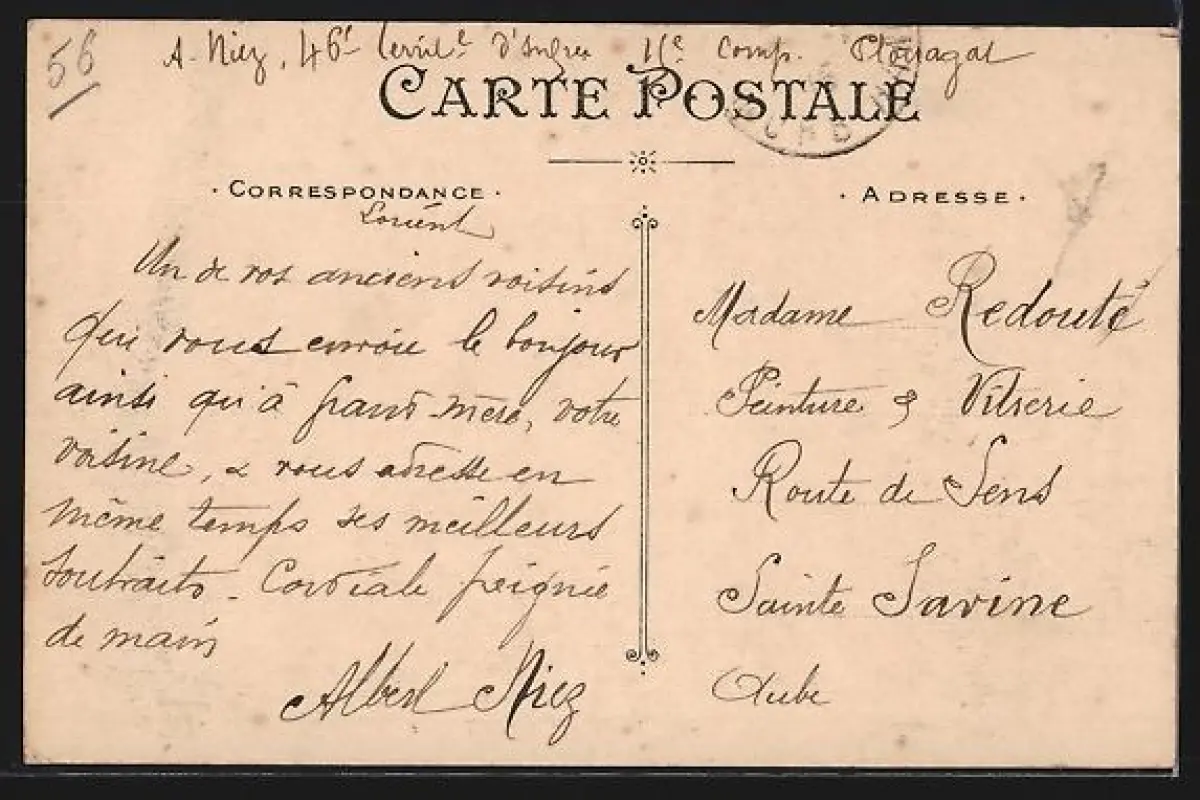 56
A. Niez, 46e Territ. d'Infrie 11e Comp. Plouagat
CARTE POSTALE
· CORRESPONDANCE ·
· ADRESSE ·
Lorient
Un de vos anciens voisins
qui vous envoie le bonjour
ainsi qu'à grand-mère, votre
voisine, & vous adresse en
même temps ses meilleurs
souhaits. Cordiale poignée
de main
Albert Niez
Madame Redouté
Peinture & Vitrerie
Route de Sens
Sainte Savine
Aube